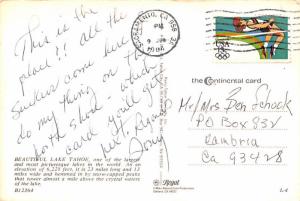 This is the
place!! all the
suckers come here
do my thing on the
north shore
card you'll get
BEAUTIFUL LAKE TAHOE, one of the largest
and most picturesque lakes in the world. At an
elevation of 6,228 feet, it is 23 miles long and 13
miles wide and hemmed in by snow-capped peaks
that tower almost a mile above the crystal waters
of the lake.
B12364
SACRAMENTO, CA 958
PM
1984
USA
the Continental card
Mr/Mrs Ben Schock
PO Box 832
Cambria
Ca 93428
Royal
L-4